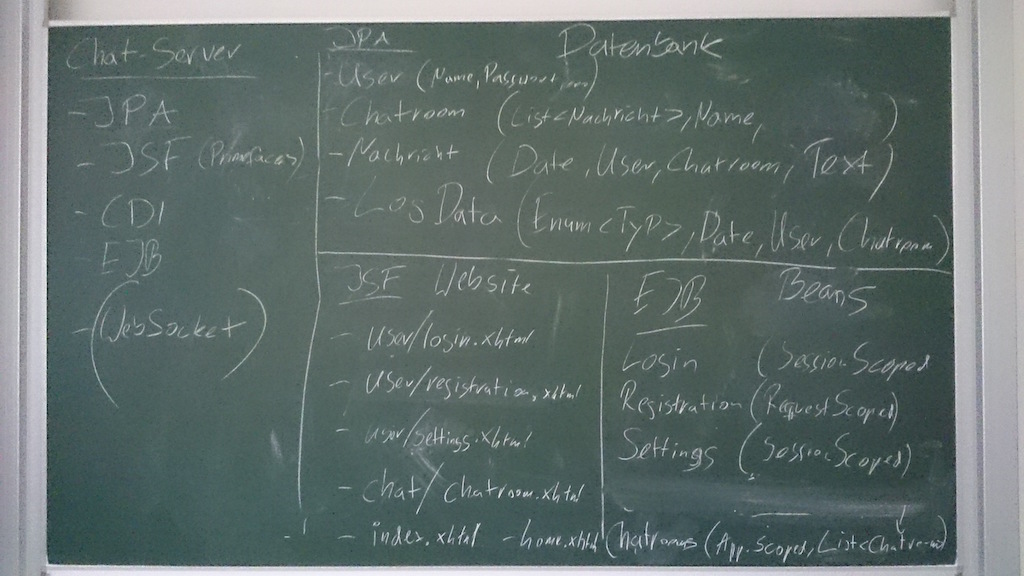 Chat-Server
- JPA
- JSF (Primefaces)
- CDI
- EJB
- (WebSocket)
JPA Datenbank
- User (Name, Passwort,
- Chatroom (List<Nachricht>, Name, )
- Nachricht (Date, User, Chatroom, Text)
- Log Data (Enum<Typ>, Date, User, Chatroom)
JSF Website
- user/login.xhtml
- user/registration.xhtml
- user/settings.xhtml
- chat/chatroom.xhtml
- index.xhtml - home.xhtml
EJB Beans
Login (SessionScoped
Registration (RequestScoped)
Settings (SessionScoped)
Chatrooms (App.Scoped, List<Chatroom>)